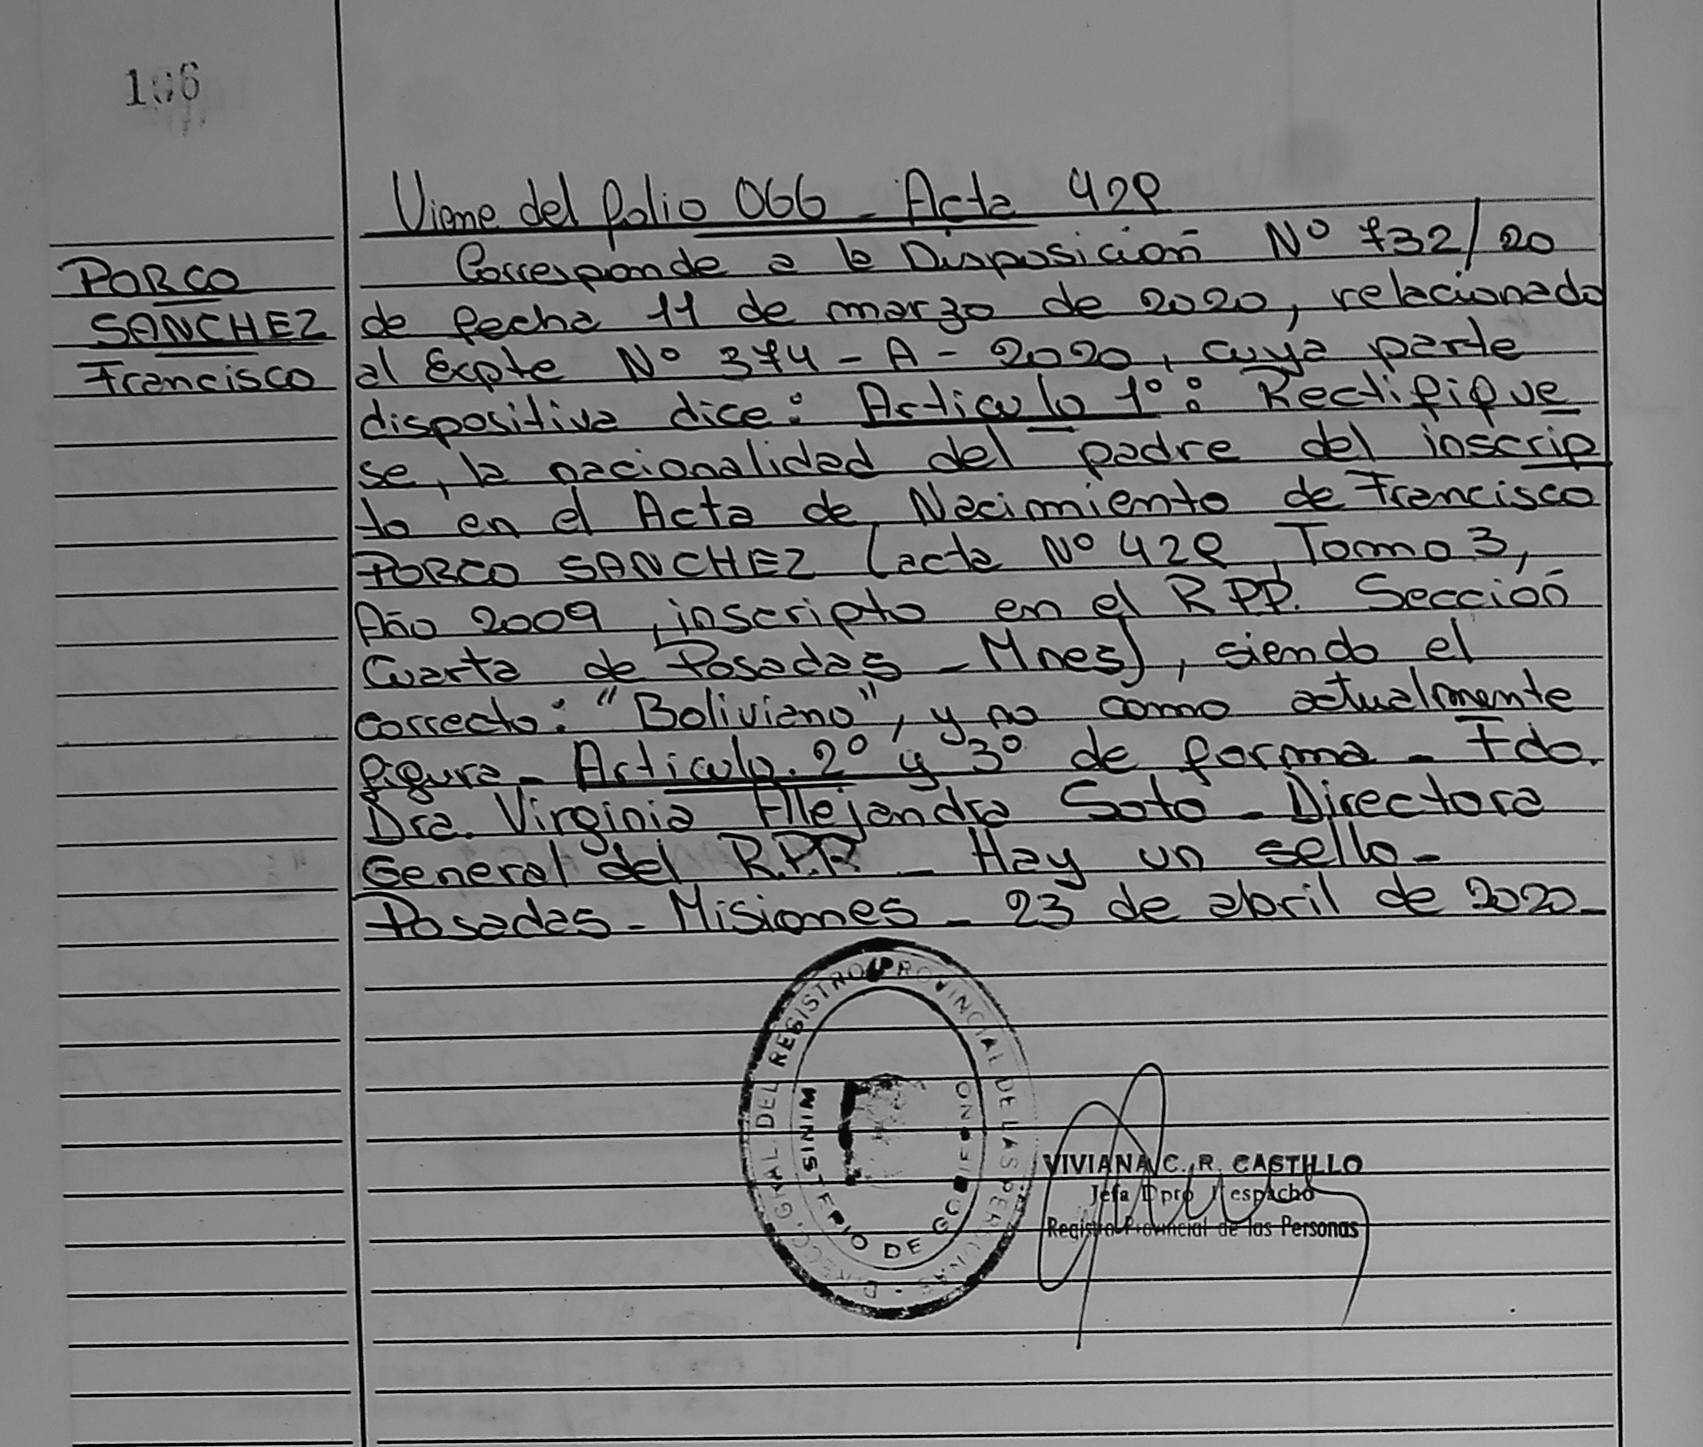 106
Viene del folio 066 - Acta 428
PORCO
SANCHEZ
Francisco
Corresponde a la Disposición Nº 732/20
de fecha 11 de marzo de 2020, relacionado
al Expte Nº 374 - A - 2020, cuya parte
dispositiva dice: Articulo 1º: Rectifique
se, la nacionalidad del padre del inscrip
to en el Acta de Nacimiento de Francisco
PORCO SANCHEZ (acta Nº 428, Tomo 3,
Año 2009, inscripto en el R.P.P. Sección
Cuarta de Posadas - Mnes), siendo el
correcto: "Boliviano", y no como actualmente
figura - Articulo. 2º y 3º de forma - Fdo.
Dra. Virginia Alejandra Soto - Directora
General del R.P.P. - Hay un sello -
Posadas - Misiones - 23 de abril de 2020 -
DIRECC. GRAL. DEL REGISTRO PROVINCIAL DE LAS PERSONAS
MINISTERIO DE GOBIERNO
VIVIANA C. R. CASTILLO
Jefa Dpto Despacho
Registro Provincial de las Personas